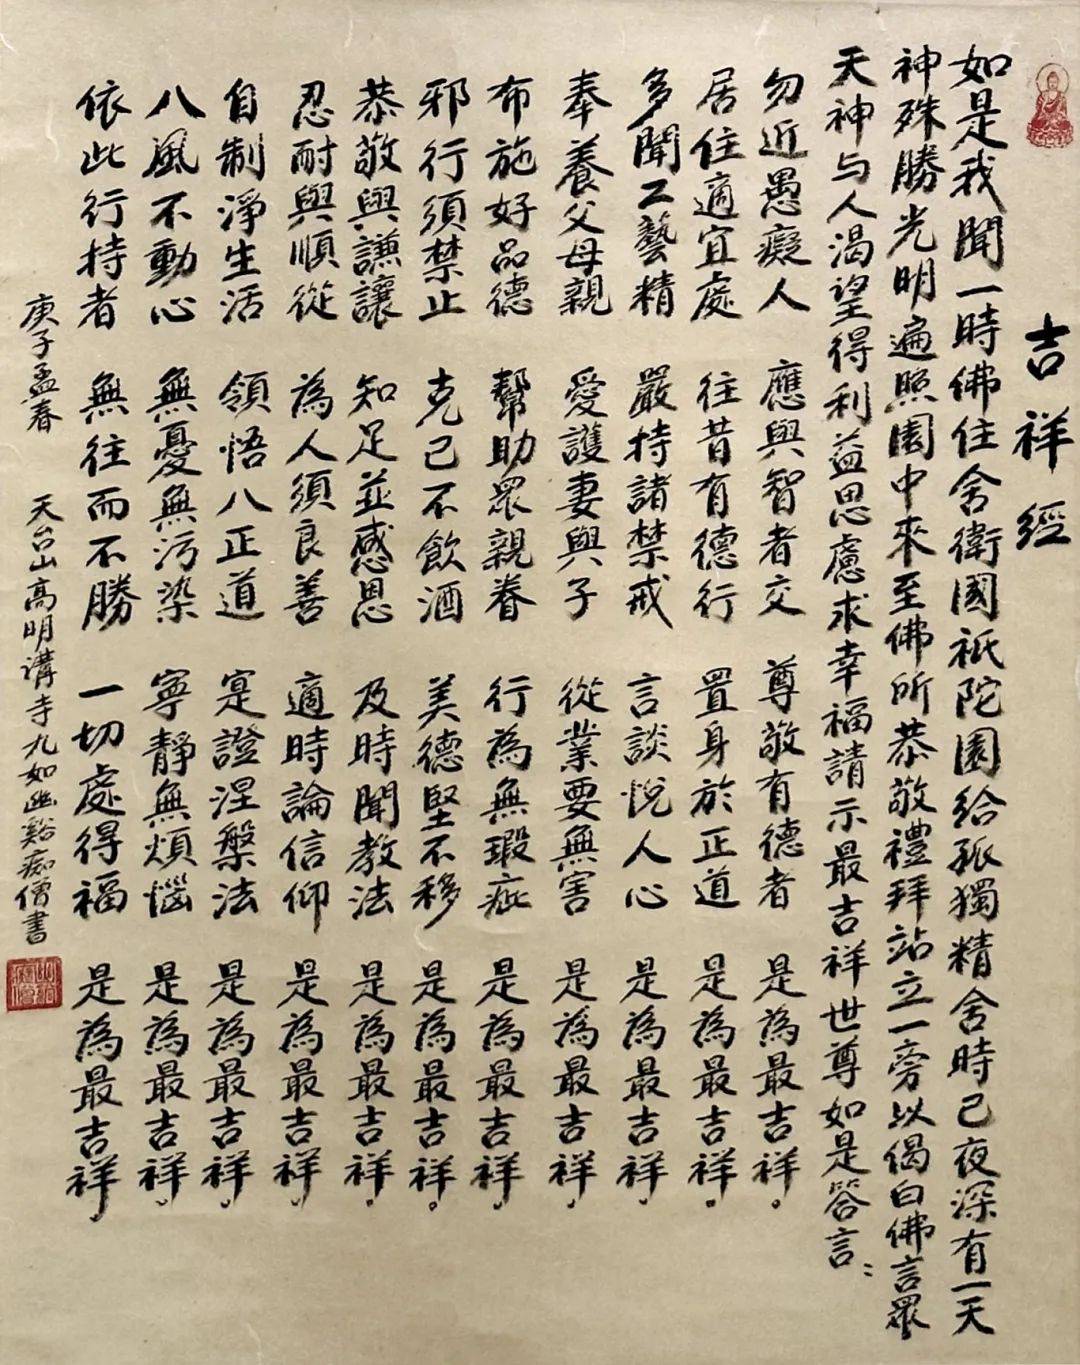 吉祥經
如是我聞一時佛住舍衛國祇陀園給孤獨精舍時已夜深有一天
神殊勝光明遍照園中來至佛所恭敬禮拜站立一旁以偈白佛言眾
天神与人渴望得利益思慮求幸福請示最吉祥世尊如是答言：
勿近愚癡人 應與智者交 尊敬有德者 是為最吉祥。
居住適宜處 往昔有德行 置身於正道 是為最吉祥。
多聞工藝精 嚴持諸禁戒 言談悅人心 是為最吉祥。
奉養父母親 愛護妻與子 從業要無害 是為最吉祥。
布施好品德 幫助眾親眷 行為無瑕疵 是為最吉祥。
邪行須禁止 克己不飲酒 美德堅不移 是為最吉祥。
恭敬與謙讓 知足並感恩 及時聞教法 是為最吉祥。
忍耐與順從 為人須良善 適時論信仰 是為最吉祥。
自制淨生活 領悟八正道 寔證涅槃法 是為最吉祥。
八風不動心 無憂無污染 寧靜無煩惱 是為最吉祥。
依此行持者 無往而不勝 一切處得福 是為最吉祥。
庚子孟春 天台山高明講寺九如幽谿痴僧書